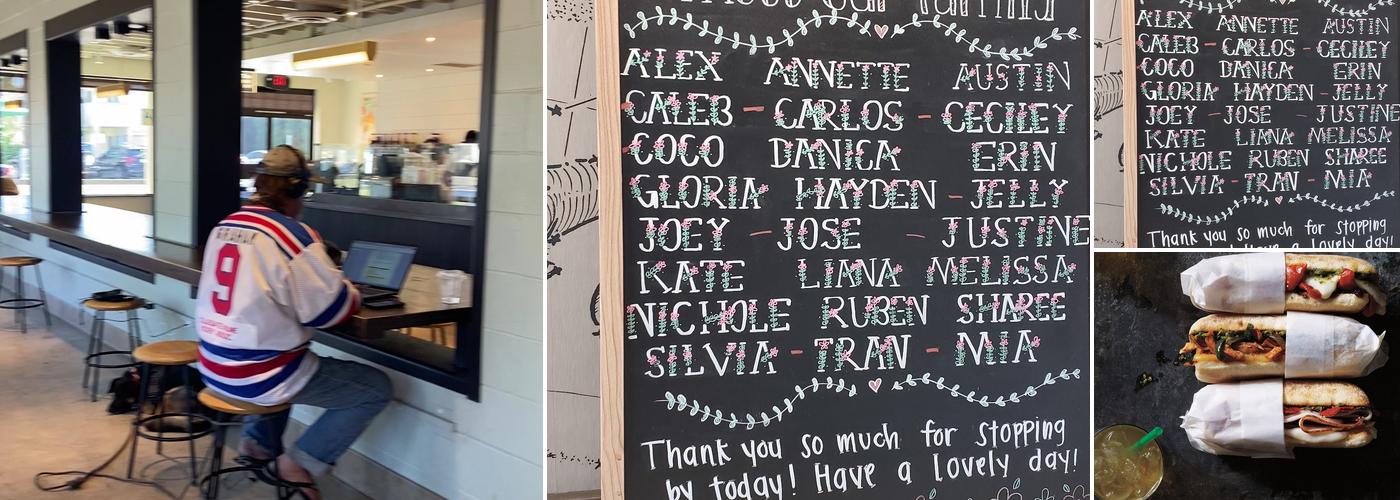 EXIT
9
ALEX ANNETTE AUSTIN
CALEB - CARLOS - CECILEY
COCO DANICA ERIN
GLORIA HAYDEN - JELLY
JOEY - JOSE - JUSTINE
KATE LIANA MELISSA
NICHOLE RUBEN SHAREE
SILVIA - TRAN - MIA
Thank you so much for stopping
by today! Have a lovely day!
ALEX ANNETTE AUSTIN
CALEB - CARLOS - CECILEY
COCO DANICA ERIN
GLORIA HAYDEN - JELLY
JOEY - JOSE - JUSTINE
KATE LIANA MELISSA
NICHOLE RUBEN SHAREE
SILVIA - TRAN - MIA
Thank you so much for stopping
Have a lovely day!